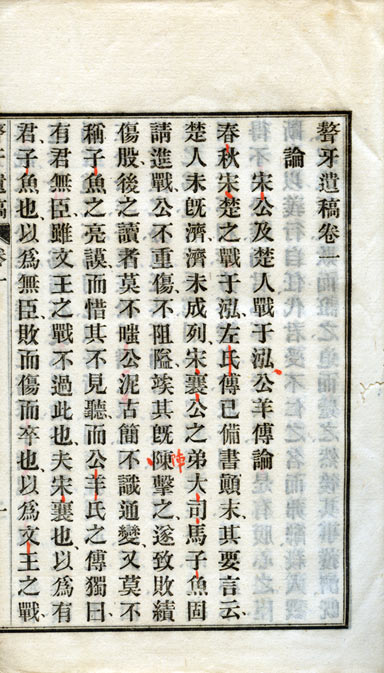 聱牙遺稿卷一
論
宋公及楚人戰于泓公羊傳論
春秋宋楚之戰于泓左氏傳已備書顛末其要言云
楚人未既濟濟未成列宋襄公之弟大司馬子魚固
請進戰公不重傷不阻隘竢其既陳擊之遂致敗績
傷股後之讀者莫不嗤公泥古簡不識通變又莫不
稱子魚之亮謨而惜其不見聽而公羊氏之傳獨曰
有君無臣雖文王之戰不過此也夫宋襄也以爲有
君子魚也以爲無臣敗而傷而卒也以爲文王之戰
聱牙遺稿
卷一
一